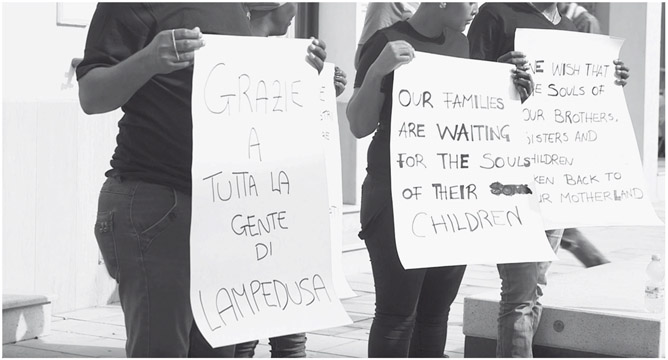 GRAZIE
A
TUTTA LA
GENTE
DI
LAMPEDUSA
OUR FAMILIES
ARE WAITING
FOR THE SOULS
OF THEIR
CHILDREN
WE WISH THAT
THE SOULS OF
OUR BROTHERS,
SISTERS AND
CHILDREN
BACK TO
OUR MOTHERLAND